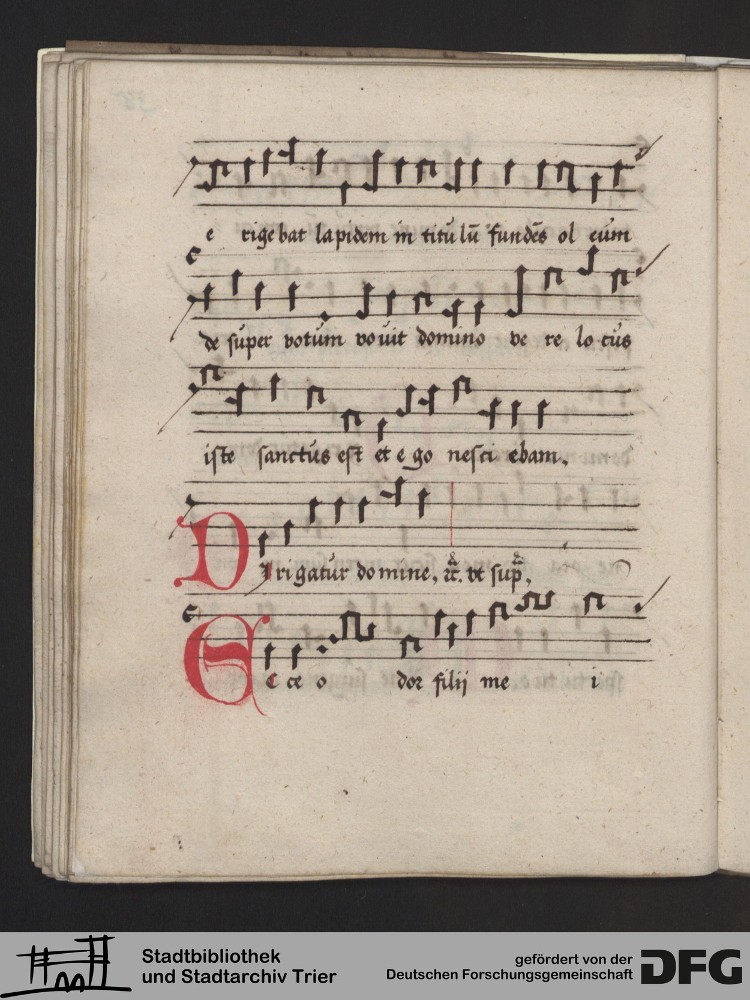 e rigebat lapidem in titulū fundēs oleum
de super votum vouit domino vere locus
iste sanctus est et ego nesciebam.
Dirigatur domine, ut sup̄,
Ecce odor filij mei
Stadtbibliothek
und Stadtarchiv Trier
gefördert von der
Deutschen Forschungsgemeinschaft
DFG